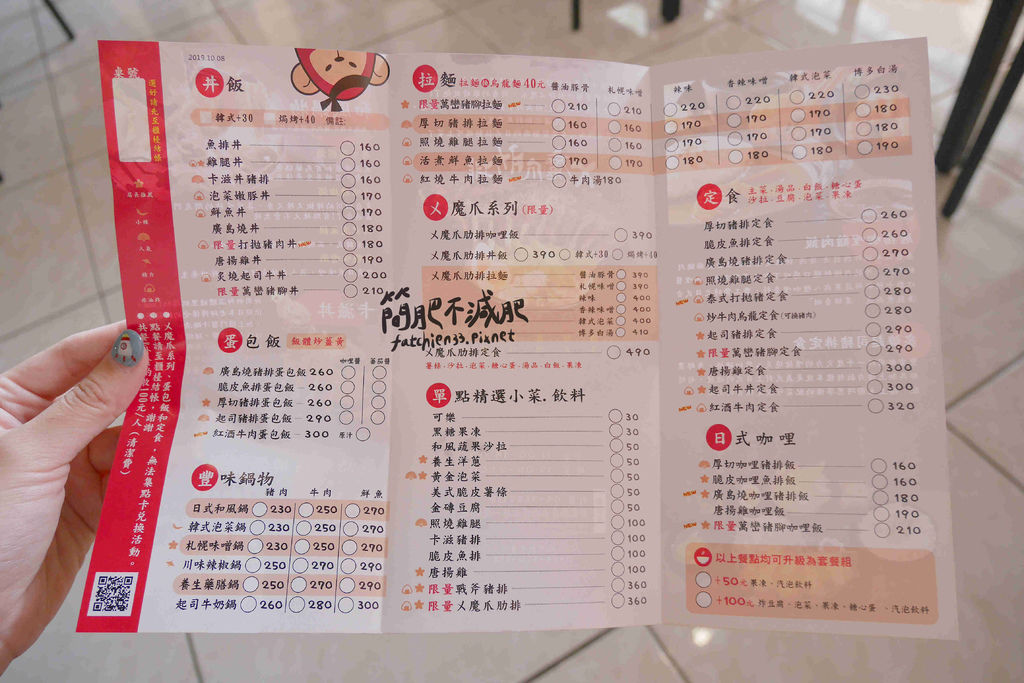 2019.10.08
桌號
還好請先至櫃檯結帳
店長推薦
小辣
人氣
● 乂魔爪系列、蛋包飯和定食
● 點餐請至櫃檯結帳，謝謝
無法集點卡兌換活動。
100元/人（清潔費）
丼飯
韓式+30 焗烤+40 備註:
魚排丼 160
雞腿丼 160
卡滋丼豬排 160
泡菜嫩豚丼 170
鮮魚丼 170
廣島燒丼 180
限量打拋豬肉丼 NEW 180
唐揚雞丼 190
炙燒起司牛丼 200
限量萬巒豬腳丼 210
蛋包飯 飯體炒薑黃
咖哩醬 蕃茄醬
廣島燒豬排蛋包飯 260
脆皮魚排蛋包飯 260
厚切豬排蛋包飯 260
起司豬排蛋包飯 290
NEW 紅酒牛肉蛋包飯 300 原汁
豐味鍋物
豬肉 牛肉 鮮魚
日式和風鍋 230 250 270
韓式泡菜鍋 230 250 270
札幌味噌鍋 230 250 270
川味辣椒鍋 250 270 290
養生藥膳鍋 250 270 290
起司牛奶鍋 260 280 300
拉麵 拉麵換烏龍麵40元 醬油豚骨 札幌味噌 辣味 香辣味噌 韓式泡菜 博多白湯
限量萬巒豬腳拉麵 NEW 210 210 220 220 220 230
厚切豬排拉麵 160 160 170 170 170 180
照燒雞腿拉麵 160 160 170 170 170 180
活煮鮮魚拉麵 170 170 180 180 180 190
紅燒牛肉拉麵 NEW 牛肉湯180
乂魔爪系列(限量)
乂魔爪肋排咖哩飯 390
乂魔爪肋排丼飯 390 韓式+30 焗烤+40
乂魔爪肋排拉麵 醬油豚骨 390
札幌味噌 390
辣味 400
香辣味噌 400
韓式泡菜 400
博多白湯 410
簡肥不減肥
fatchien33.pixnet
乂魔爪肋排定食 490
薯條.沙拉.泡菜.糖心蛋.湯品.白飯.果凍
單點精選小菜.飲料
可樂 30
黑糖果凍 30
和風蔬果沙拉 50
養生洋蔥 50
黃金泡菜 50
美式脆皮薯條 50
金磚豆腐 50
照燒雞腿 100
卡滋豬排 100
脆皮魚排 100
唐揚雞 100
限量戰斧豬排 360
限量乂魔爪肋排 360
定食 主菜.湯品.白飯.糖心蛋
沙拉.豆腐.泡菜.果凍
厚切豬排定食 260
脆皮魚排定食 260
廣島燒豬排定食 270
照燒雞腿定食 270
NEW 泰式打拋豬定食 280
炒牛肉烏龍定食(可換豬肉) 280
起司豬排定食 290
NEW 限量萬巒豬腳定食 290
唐揚雞定食 300
起司牛丼定食 300
NEW 紅酒牛肉定食 320
日式咖哩
厚切咖哩豬排飯 160
脆皮咖哩魚排飯 160
NEW 廣島燒咖哩豬排飯 180
唐揚雞咖哩飯 190
NEW 限量萬巒豬腳咖哩飯 210
以上餐點均可升級為套餐組
+50元 果凍、汽泡飲料
+100元 炸豆腐、泡菜、果凍、糖心蛋、汽泡飲料